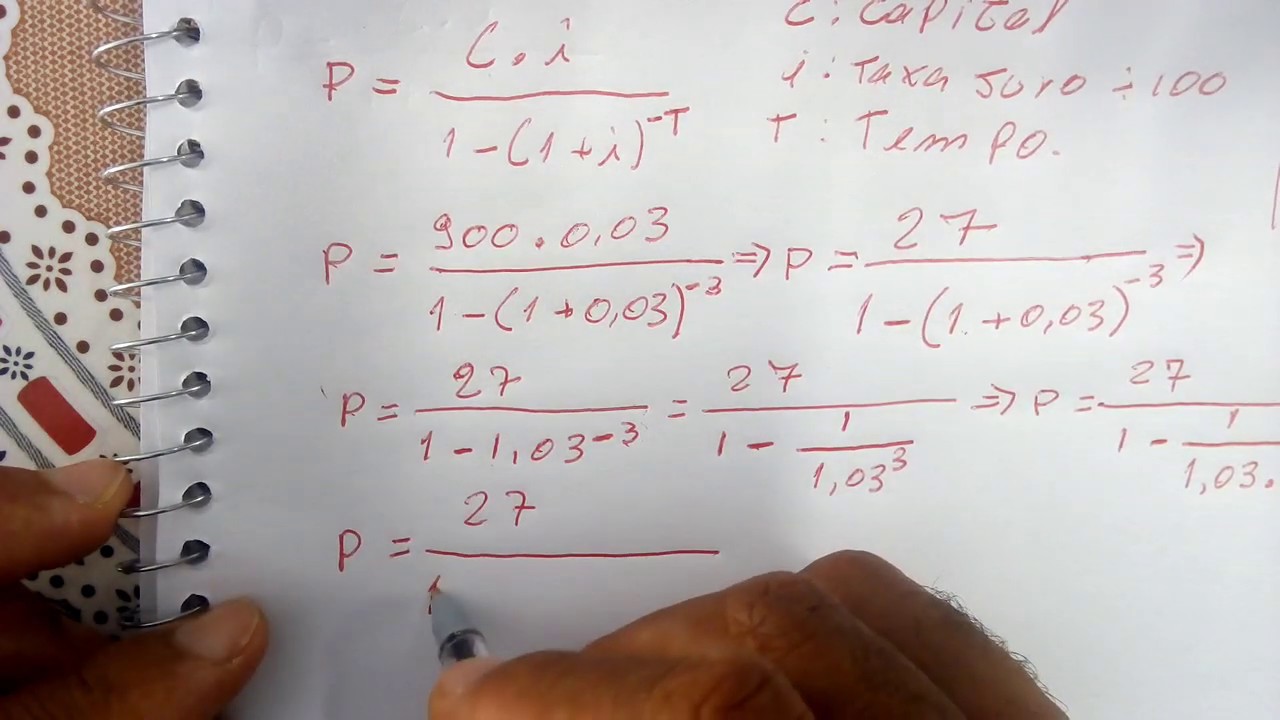 C : Capital
P = C . i / 1 - (1 + i)^-T
i : Taxa Juro ÷ 100
T : Tempo.
P = 900 . 0,03 / 1 - (1 + 0,03)^-3 ⇒ P = 27 / 1 - (1 + 0,03)^-3 ⇒
P = 27 / 1 - 1,03^-3 = 27 / 1 - 1 / 1,03^3 ⇒ P = 27 / 1 - 1 / 1,03 .
P = 27 / 1